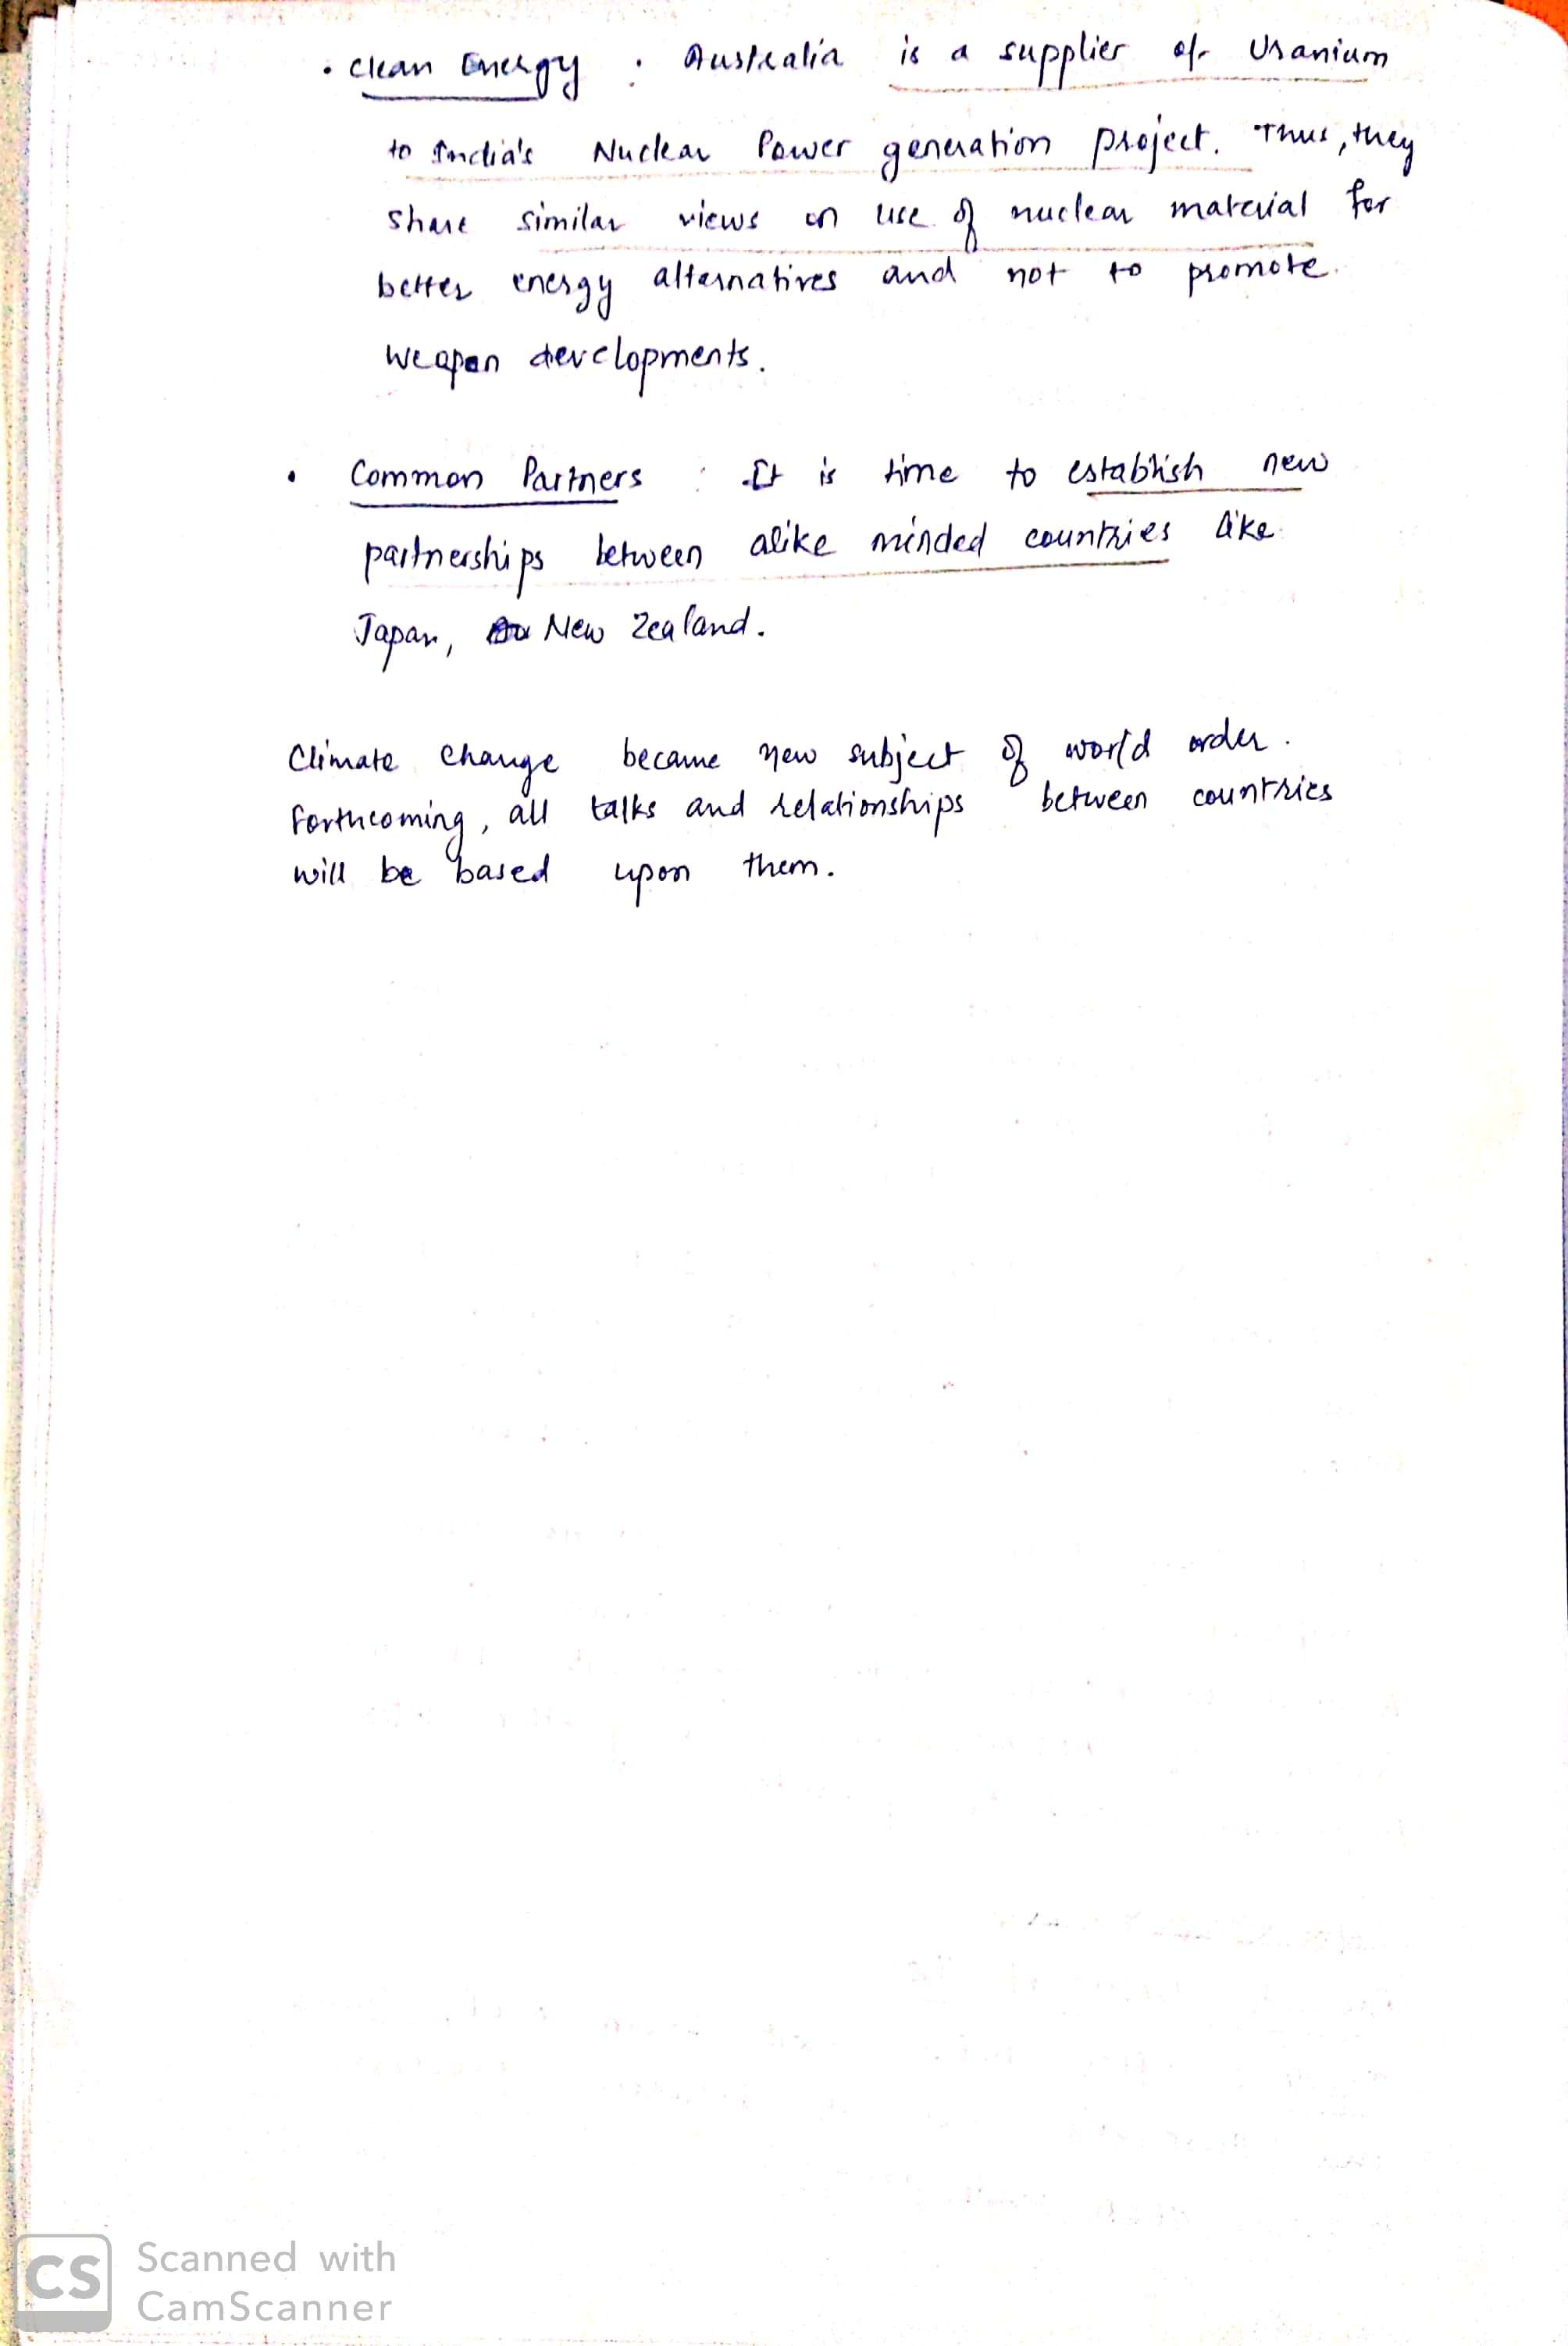 • Clean Energy : Australia is a supplier of Uranium
to India's Nuclear Power generation project. Thus, they
share similar views on use of nuclear material for
better energy alternatives and not to promote
weapon developments.
• Common Partners : It is time to establish new
partnerships between alike minded countries like
Japan, New Zealand.
Climate change became new subject of world order.
Forthcoming, all talks and relationships between countries
will be based upon them.
CS Scanned with
CamScanner